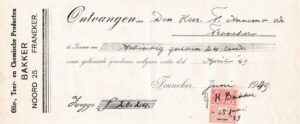 Olie-, Teer- en Chemische Producten
BAKKER
NOORD 25 FRANEKER
Ontvangen van Den Heer F. Annema
Franeker
de Somma van twintig gulden 24 cent
voor geleverde goederen volgens nota dd. April 49
Franeker, Juni 1949
Zegge f 20.24
Bakker
Juni
49